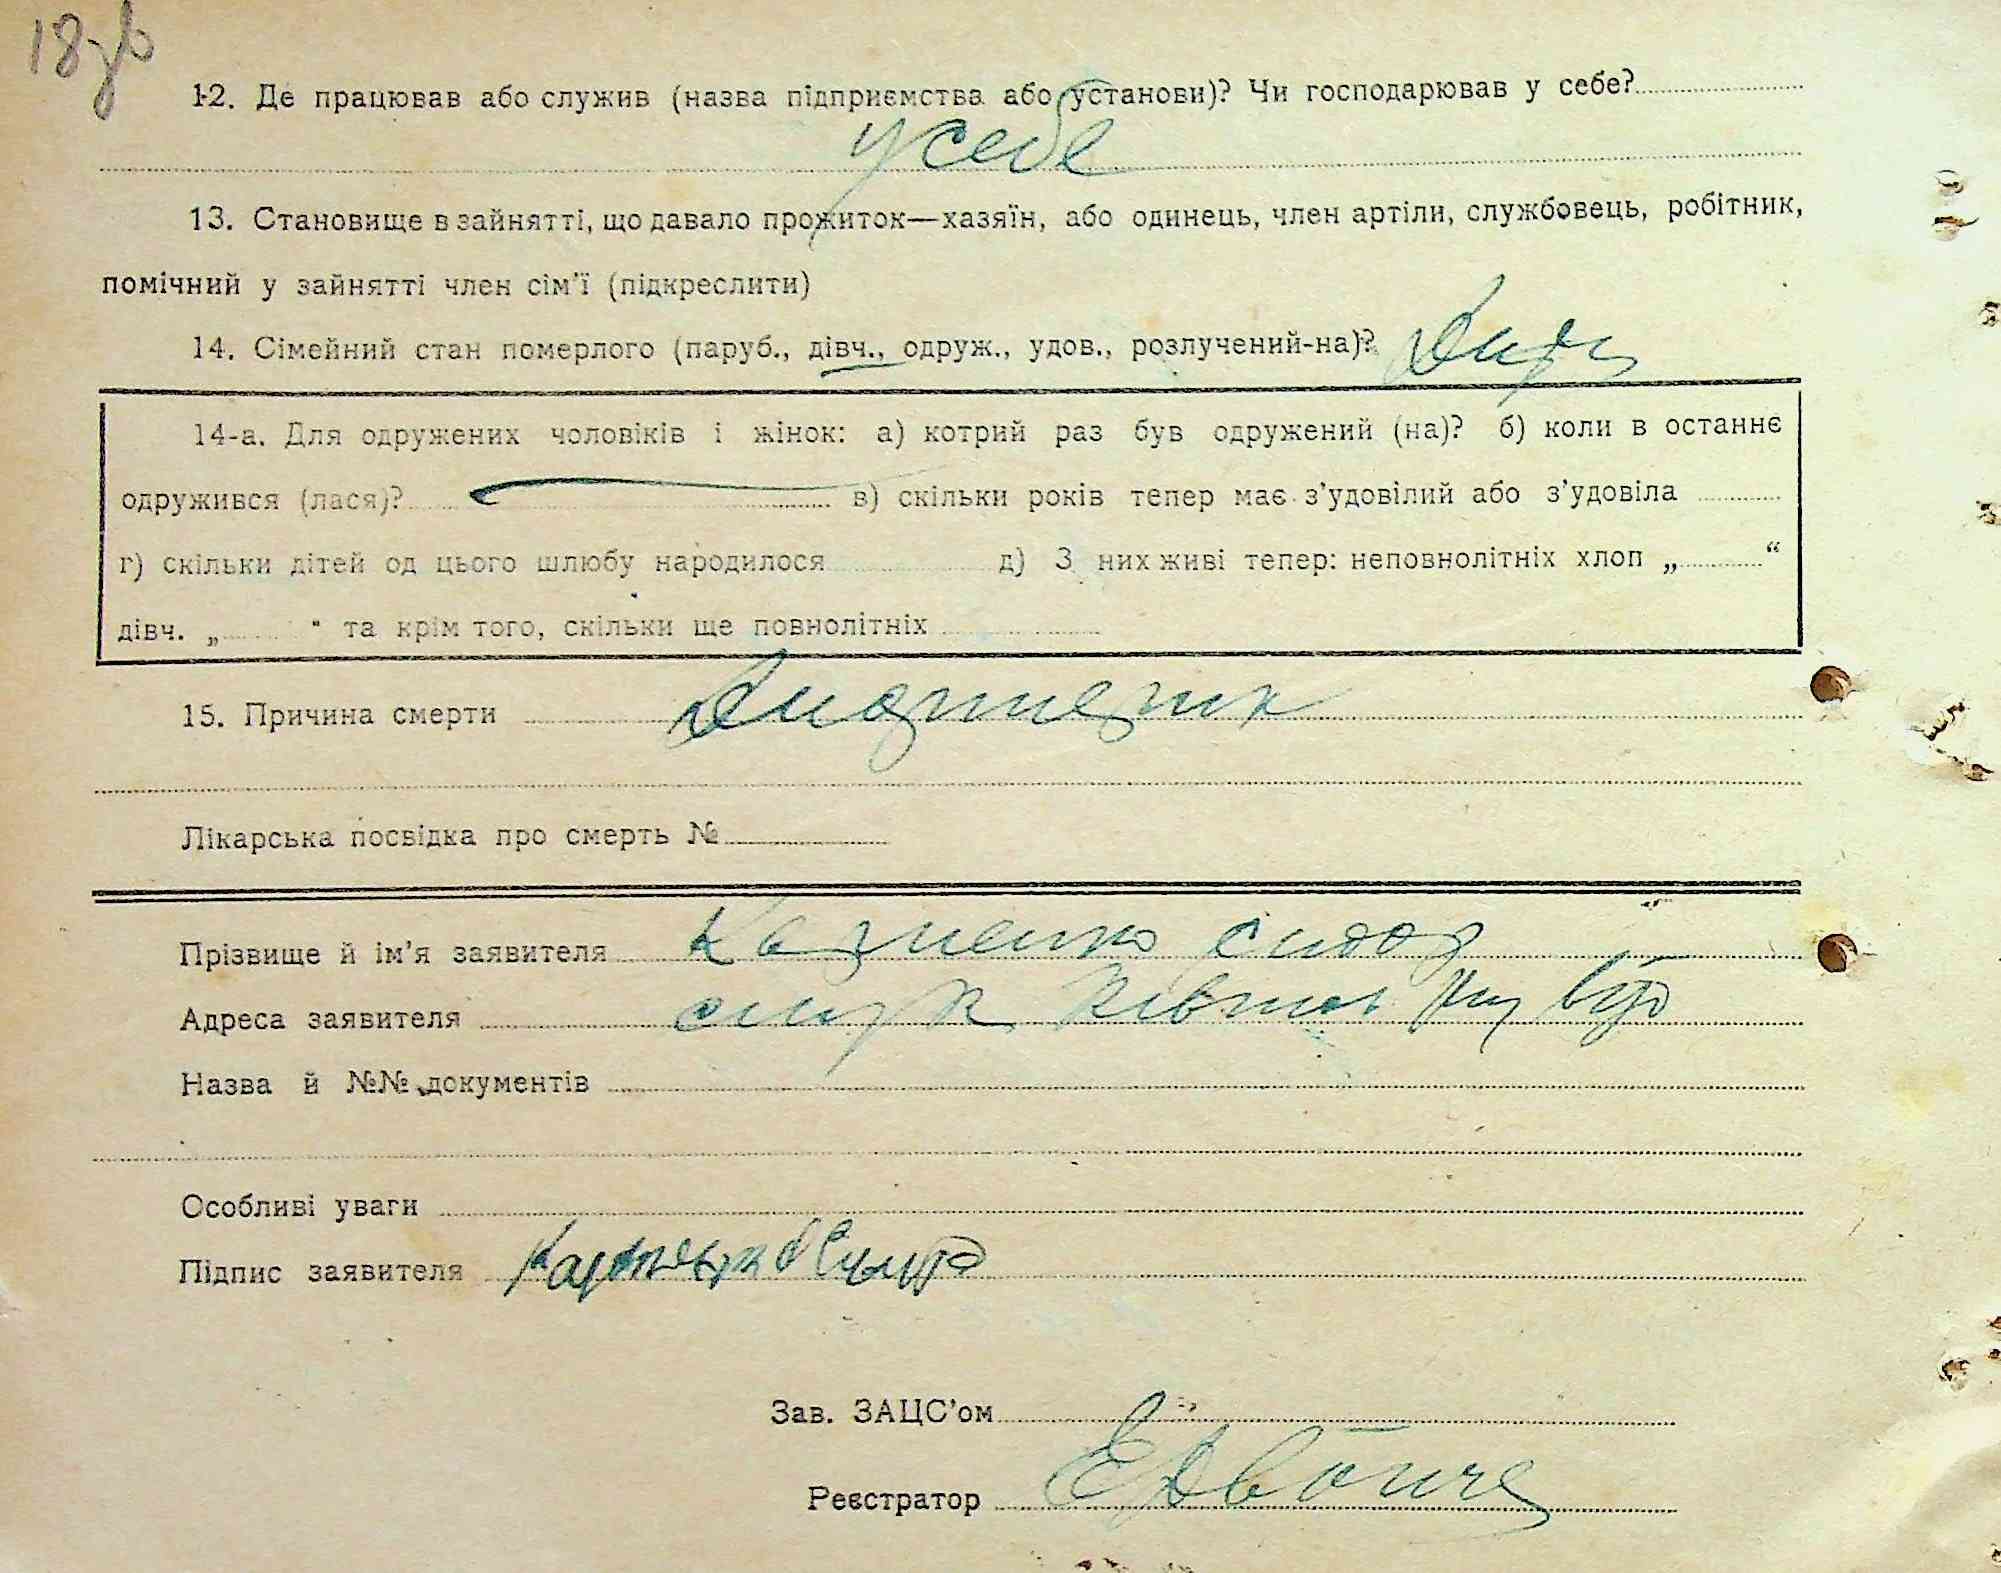 18зв
12. Де працював або служив (назва підприємства або установи)? Чи господарював у себе?
у себе
13. Становище в зайнятті, що давало прожиток—хазяїн, або одинець, член артіли, службовець, робітник,
помічний у зайнятті член сім'ї (підкреслити)
14. Сімейний стан померлого (паруб., дівч., одруж., удов., розлучений-на)?
14-а. Для одружених чоловіків і жінок: а) котрий раз був одружений (на)? б) коли в останнє
одружився (лася)? в) скільки років тепер має з'удовілий або з'удовіла
г) скільки дітей од цього шлюбу народилося д) З них живі тепер: неповнолітніх хлоп „ “
дівч. „ “ та крім того, скільки ще повнолітніх
15. Причина смерти
Лікарська посвідка про смерть №
Прізвище й ім'я заявителя Сидор
Адреса заявителя
Назва й №№ документів
Особливі уваги
Підпис заявителя
Зав. ЗАЦС'ом
Реєстратор